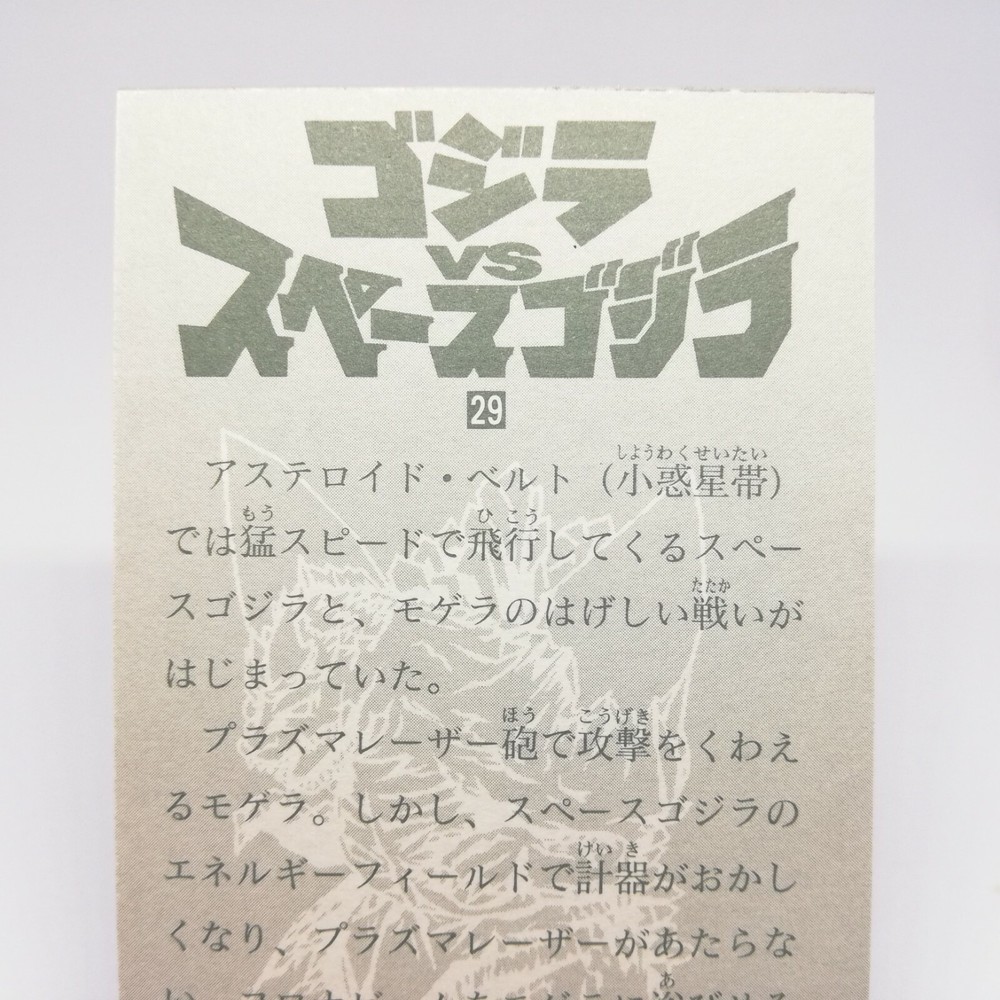 ゴジラ
VS
スペースゴジラ
29
アステロイド・ベルト（小惑星帯）
しようわくせいたい
では猛スピードで飛行してくるスペー
もう ひ こう
スゴジラと、モゲラのはげしい戦いが
たたか
はじまっていた。
プラズマレーザー砲で攻撃をくわえ
ほう こうげき
るモゲラ。しかし、スペースゴジラの
エネルギーフィールドで計器がおかし
けい き
くなり、プラズマレーザーがあたらな
あ